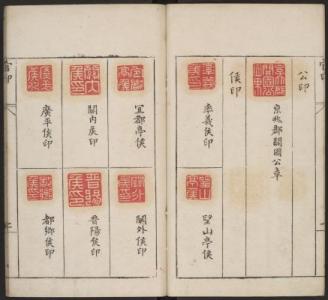 公印
京兆郡開國公章
侯印
率義侯印
望山亭侯
宜都亭侯
關內侯印
廣平侯印
關外侯印
晉陽侯印
都鄉侯印
官印